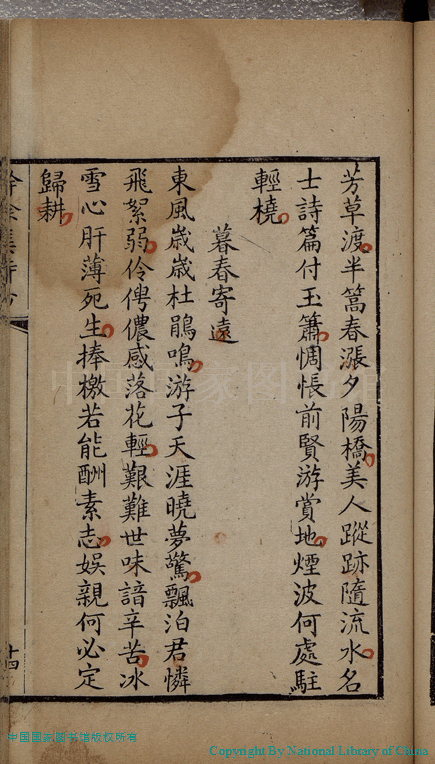 芳草渡半篙春漲夕陽橋美人蹤跡隨流水名
士詩篇付玉簫惆悵前賢游賞地煙波何處駐
輕橈
暮春寄遠
東風歲歲杜鵑鳴游子天涯曉夢驚飄泊君憐
飛絮弱伶俜儂感落花輕艱難世味諳辛苦冰
雪心肝薄死生捧檄若能酬素志娛親何必定
歸耕
十四
中国国家图书馆
中国国家图书馆版权所有
Copyright By National Library of China